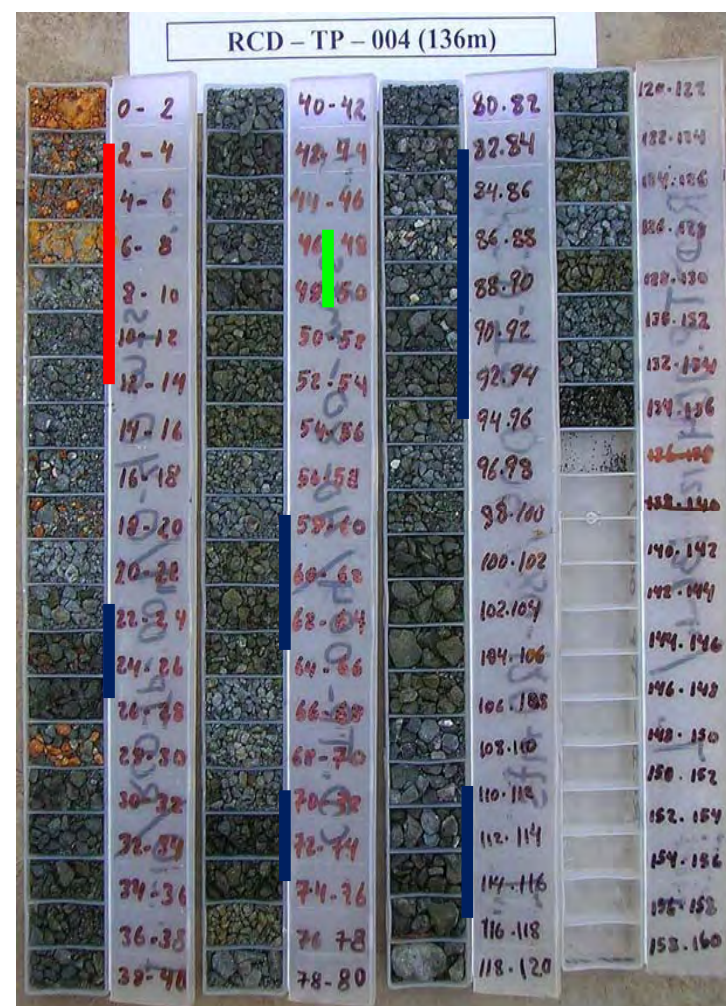 RCD – TP – 004 (136m)
0 - 2
2 - 4
4 - 6
6 - 8
8 - 10
10 - 12
12 - 14
14 - 16
16 - 18
18 - 20
20 - 22
22 - 24
24 - 26
26 - 28
28 - 30
30 - 32
32 - 34
34 - 36
36 - 38
38 - 40
40 - 42
42 - 44
44 - 46
46 - 48
48 - 50
50 - 52
52 - 54
54 - 56
56 - 58
58 - 60
60 - 62
62 - 64
64 - 66
66 - 68
68 - 70
70 - 72
72 - 74
74 - 76
76 78
78 - 80
80.82
82.84
84.86
86.88
88.90
90.92
92.94
94.96
96.98
98.100
100.102
102.104
104.106
106.108
108.110
110.112
112.114
114.116
116.118
118.120
120.122
122.124
124.126
126.128
128.130
130.132
132.134
134.136
136.138
138.140
140.142
142.144
144.146
146.148
148.150
150.152
152.154
154.156
156.158
158.160